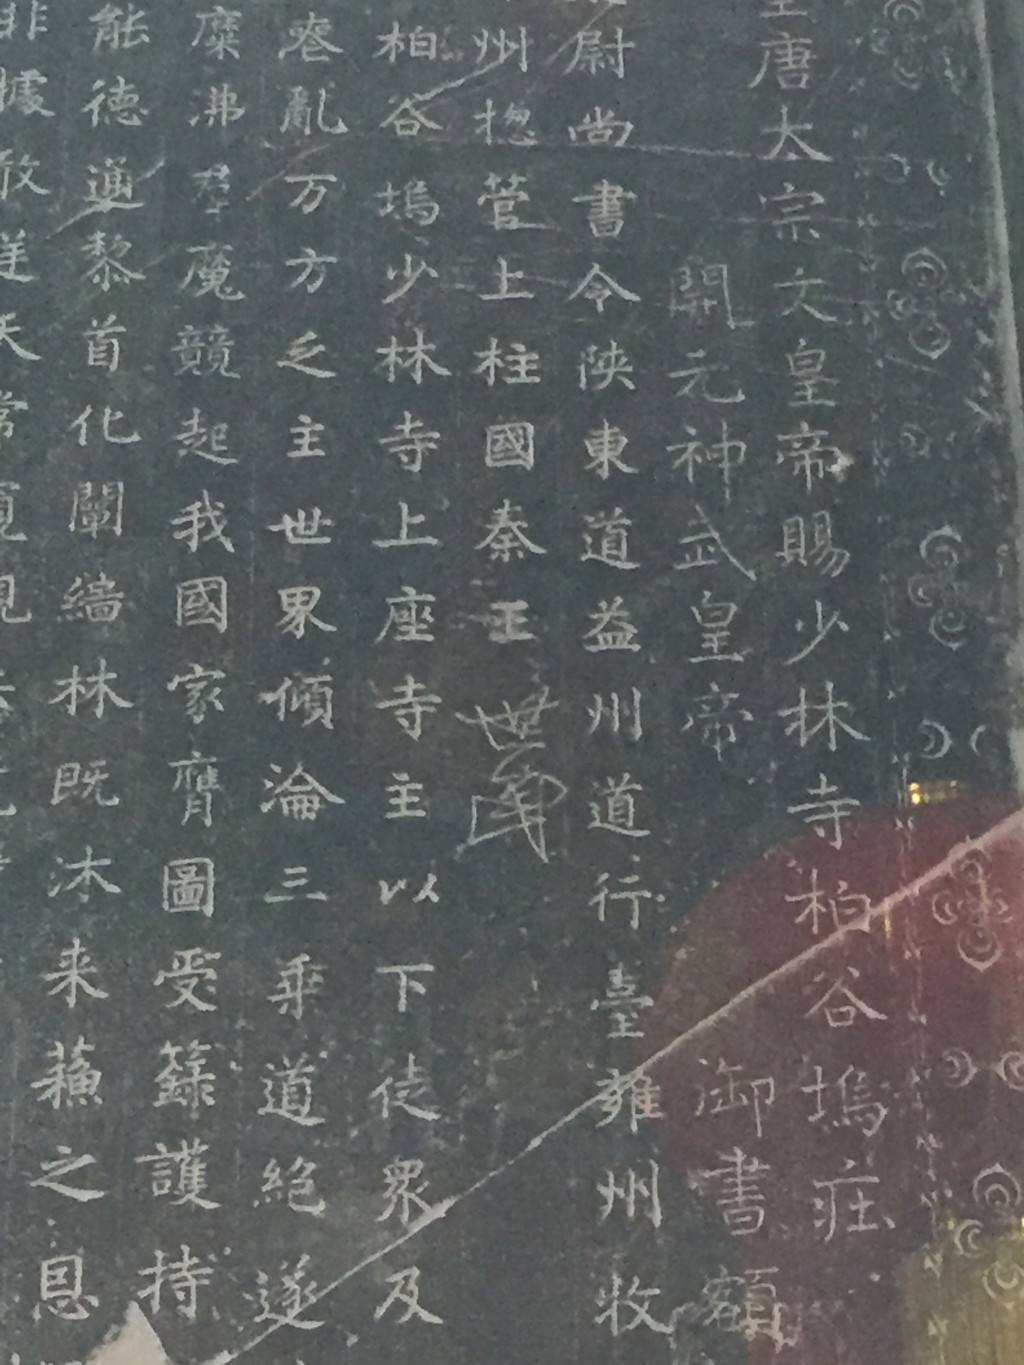 唐太宗文皇帝賜少林寺柏谷塢莊
開元神武皇帝 御書額
尉尚書令陝東道益州道行臺雍州牧
州揔管上柱國秦王世民
柏谷塢少林寺上座寺主以下徒衆及
亂万方乏主世界傾淪三乗道絕遂
糜沸群魔競起我國家膺圖受籙護持
能德通黎首化闡緇林既沐来蘓之恩